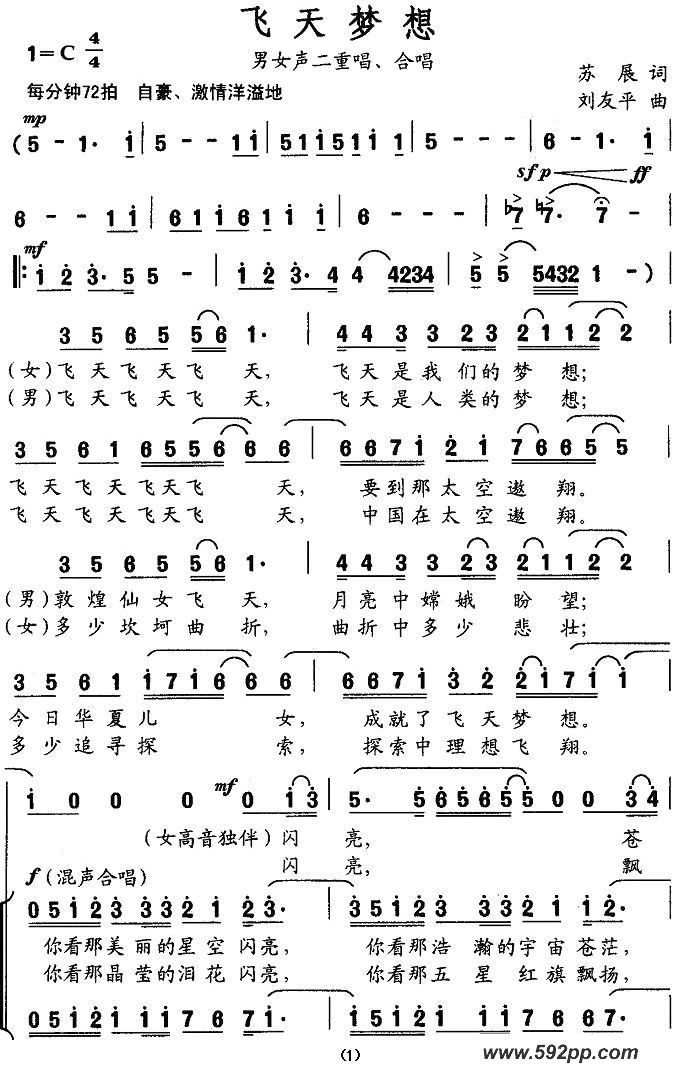 飞天梦想
男女声二重唱、合唱
1=C 4/4
每分钟72拍 自豪、激情洋溢地
苏展 词
刘友平 曲
mp
(5 - 1· i | 5 - - 1 i | 5 1 i 5 1 i 5 i | 5 - - - | 6 - 1· i
sfp ff
6 - - 1 i | 6 1 i 6 1 i 1 i | 6 - - - | ♭7 ♭7· 7 -
mf
‖: i 2 3· 5 5 - | i 2 3· 4 4 4234 | 5 5 5432 1 - )
3 5 6 5 5 6 1· | 4 4 3 3 2 3 2 1 1 2 2
(女)飞天飞天飞天, 飞天是我们的梦想;
(男)飞天飞天飞天, 飞天是人类的梦想;
3 5 6 1 6 5 5 6 6 6 | 6 6 7 i 2 1 7 6 6 5 5
飞天飞天飞天飞天, 要到那太空遨翔。
飞天飞天飞天飞天, 中国在太空遨翔。
3 5 6 5 5 6 1· | 4 4 3 3 2 3 2 1 1 2 2
(男)敦煌仙女飞天, 月亮中嫦娥盼望;
(女)多少坎坷曲折, 曲折中多少悲壮;
3 5 6 1 i 7 i 6 6 6 | 6 6 7 i 3 2 2 i 7 i i
今日华夏儿女, 成就了飞天梦想。
多少追寻探索, 探索中理想飞翔。
mf
i 0 0 0 0 i 3 | 5· 5 6 5 6 5 5 0 0 3 4
(女高音独伴)闪亮, 苍
闪亮, 飘
f (混声合唱)
0 5 i 2 3 3 3 2 i 2 3· | 3 5 i 2 3 3 3 2 i 2 3·
你看那美丽的星空闪亮, 你看那浩瀚的宇宙苍茫,
你看那晶莹的泪花闪亮, 你看那五星红旗飘扬,
0 5 i 2 i i i 7 6 7 i· | i 5 i 2 i i i 7 6 6 7·
(1)
www.592pp.com